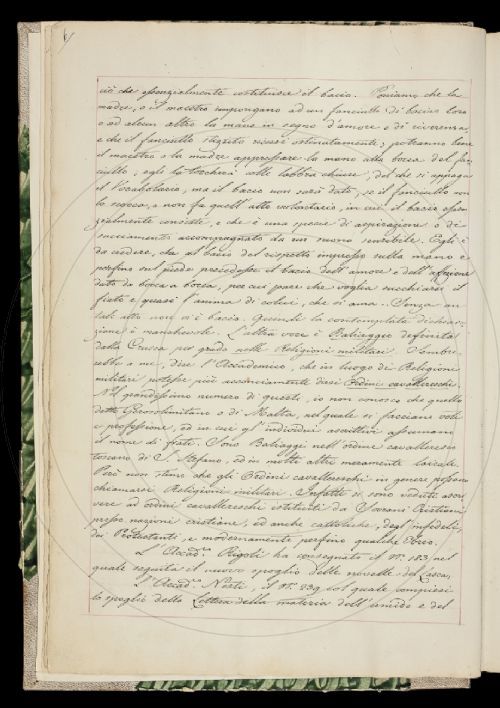 6
ciò che essenzialmente costituisce il bacio. Poniamo che la
madre, o il maestro impongano ad un fanciullo di baciar loro
o ad alcun altro la mano in segno d'amore o di riverenza,
e che il fanciullo stesso ricusi ostinatamente; potranno bene
il maestro e la madre appressare la mano alla bocca del fan
ciullo, egli la toccherà colle labbra chiuse, del che si appaga
il Vocabolario, ma il bacio non sarà dato, se il fanciullo non
la scocca, a non fa quell'atto volontario, in cui il bacio essen
zialmente consiste, e che è una specie di aspirazione o di
succiamento accompagnato da un suono sensibile. Egli è
da credere, che al bacio del rispetto impresso sulla mano e
perfino sul piede precedesse il bacio dell'amore e dell'affezione
dato da bocca a bocca, per cui pare che voglia succhiarsi il
fiato e quasi l'anima di colui, che si ama. Senza un
tale atto non vi è bacio. Quindi la contemplata dichiara
zione è manchevole. L'altra voce è Baliaggio definita
dalla Crusca per grado nelle Religioni militari. Sembre
rebbe a me, disse l'Accademico, che in luogo di Religioni
militari potesse più acconciamente dirsi Ordini cavallereschi.
Nel grandissimo numero di questi, io non conosco che quello
detto Gerosolimitano o di Malta, nel quale si facciano voti
e professione, ed in cui gl'individui ascrittivi assumano
il nome di frati. Sono Baliaggi nell'ordine cavalleresco
toscano di S. Stefano, ed in molti altri meramente laicali.
Però non stimo che gli Ordini cavallereschi in genere possano
chiamarsi Religioni militari. Infatti si sono veduti ascri
vere ad ordini cavallereschi istituiti da Sovrani Cristiani
presso nazioni cristiane, ed anche cattoliche, degl'infedeli,
dei Protestanti, e modernamente perfino qualche Ebreo.
L'Accad.º Rigoli ha consegnato il N.º 183, nel
quale seguita il nuovo spoglio delle novelle del Lasca.
L'Accad.º Nesti, il N.º 239 col quale compiesi
lo spoglio della Lettera della materia dell'umido e del